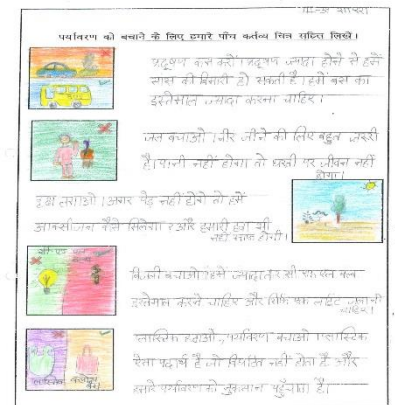 पर्यावरण को बचाने के लिए हमारे पाँच कर्तव्य चित्र सहित लिखें।
प्रदूषण कम करो। प्रदूषण ज्यादा होने से हमें
सास की बिमारी हो सकती है। हमें बस का
इस्तेमाल ज्यादा करना चाहिए।
जल बचाओ। नीर जीने की लिए बहुत जरुरी
है। पानी नहीं होगा तो धरती पर जीवन नहीं
होगा।
वृक्ष लगाओ। अगर पेड़ नहीं होंगे तो हमें
आक्सीजन कैसे मिलेगा? और हमारी हवा भी
नहीं साफ होगी।
बिजली बचाओ। हमें ज्यादातर सी एफ एल बल्ब
इस्तेमाल करने चाहिए और सिर्फ एक लाईट जलानी
चाहिए।
प्लास्टिक हटाओ, पर्यावरण बचाओ। प्लास्टिक
ऐसा पदार्थ है जो विघटित नहीं होता है और
हमारे पर्यावरण को नुकसान पहुँचाता है।